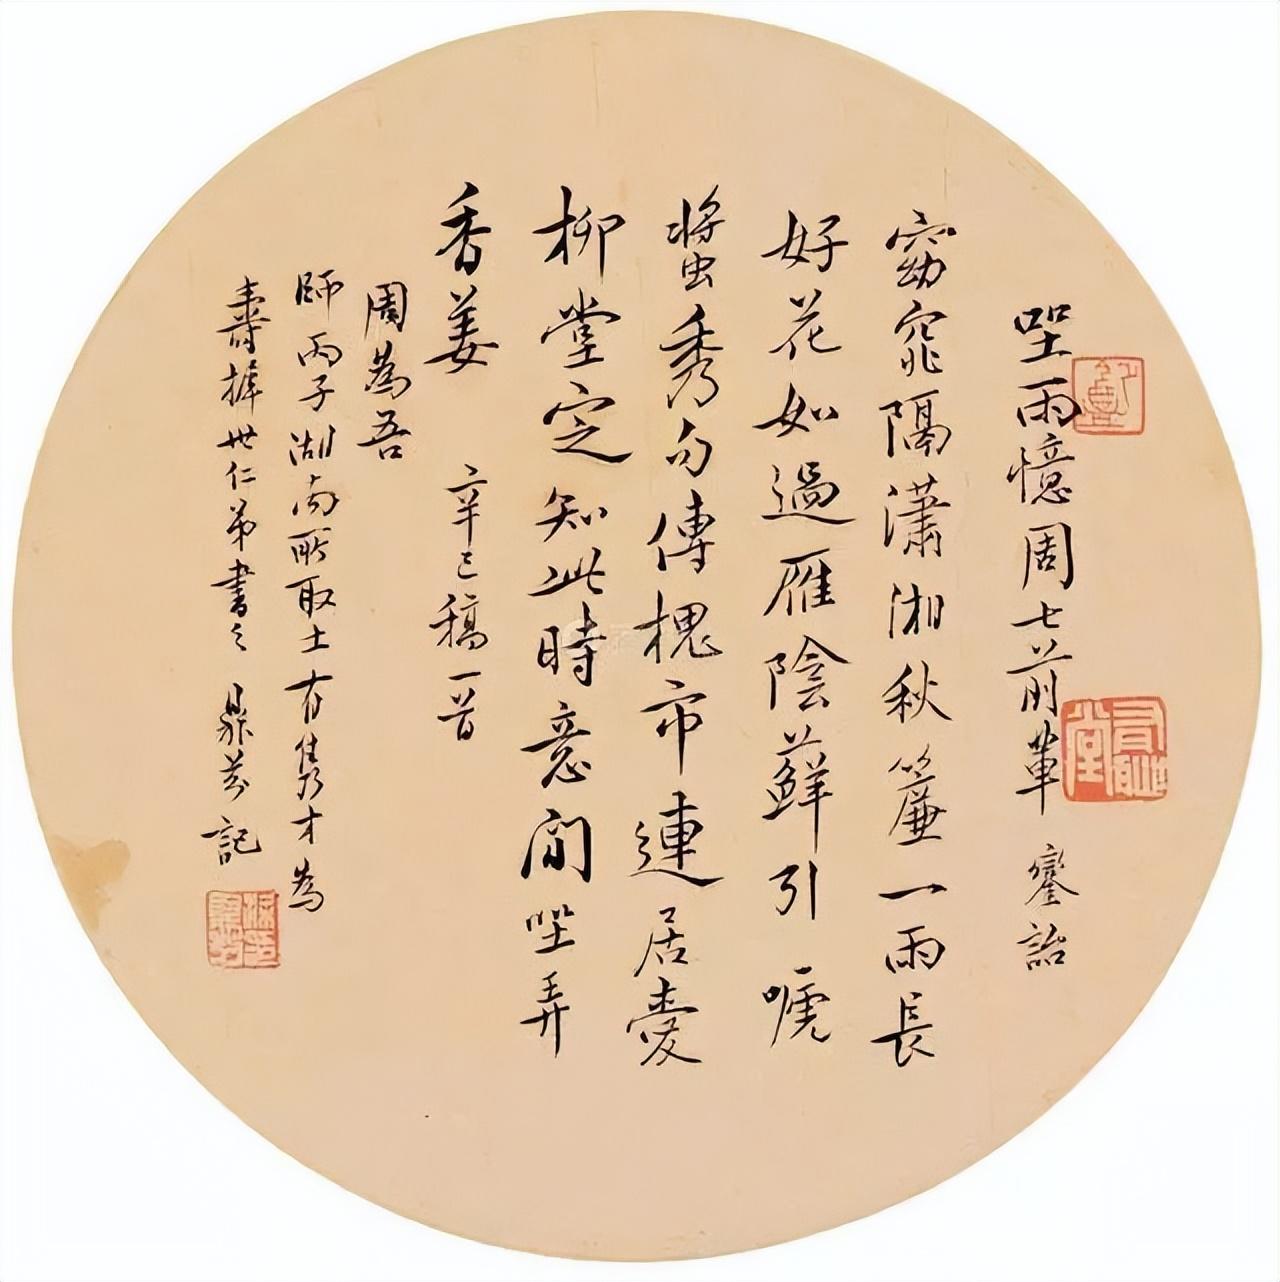 坐雨憶周七前輩 鑾詒
窈窕隔瀟湘秋簾一雨長
好花如過雁陰蘚引嗁
螿秀句傳槐市連居愛
柳堂定知此時意閒坐弄
香姜 辛巳稿一首
周為吾
師丙子湖南所取士有雋才為
壽㧾世仁弟書之 鼎芬記